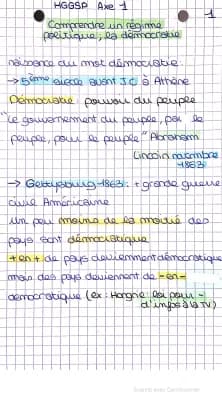 HGGSP Axe 1
1
Comprendre un régime
politique, la démocratie
naissance du mot démocratie.
→ 5ème siècle avant JC à Athène
Démocratie : pouvoir du peuple
"le gouvernement du peuple, par le
peuple, pour le peuple" Abraham
Lincoln novembre
1863
→ Gettysburg 1863 : + grande guerre
civile Américaine
Un peu moins de la moitié des
pays sont démocratique
+ en + de pays deviennent démocratique
mais des pays deviennent de - en -
démocratique (ex : Hongrie loi pour -
d'infos à la TV)
Scanné avec CamScanner